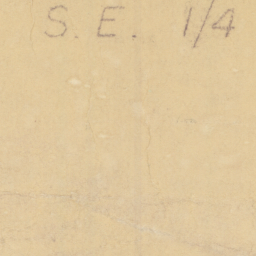 S. E. 1/4